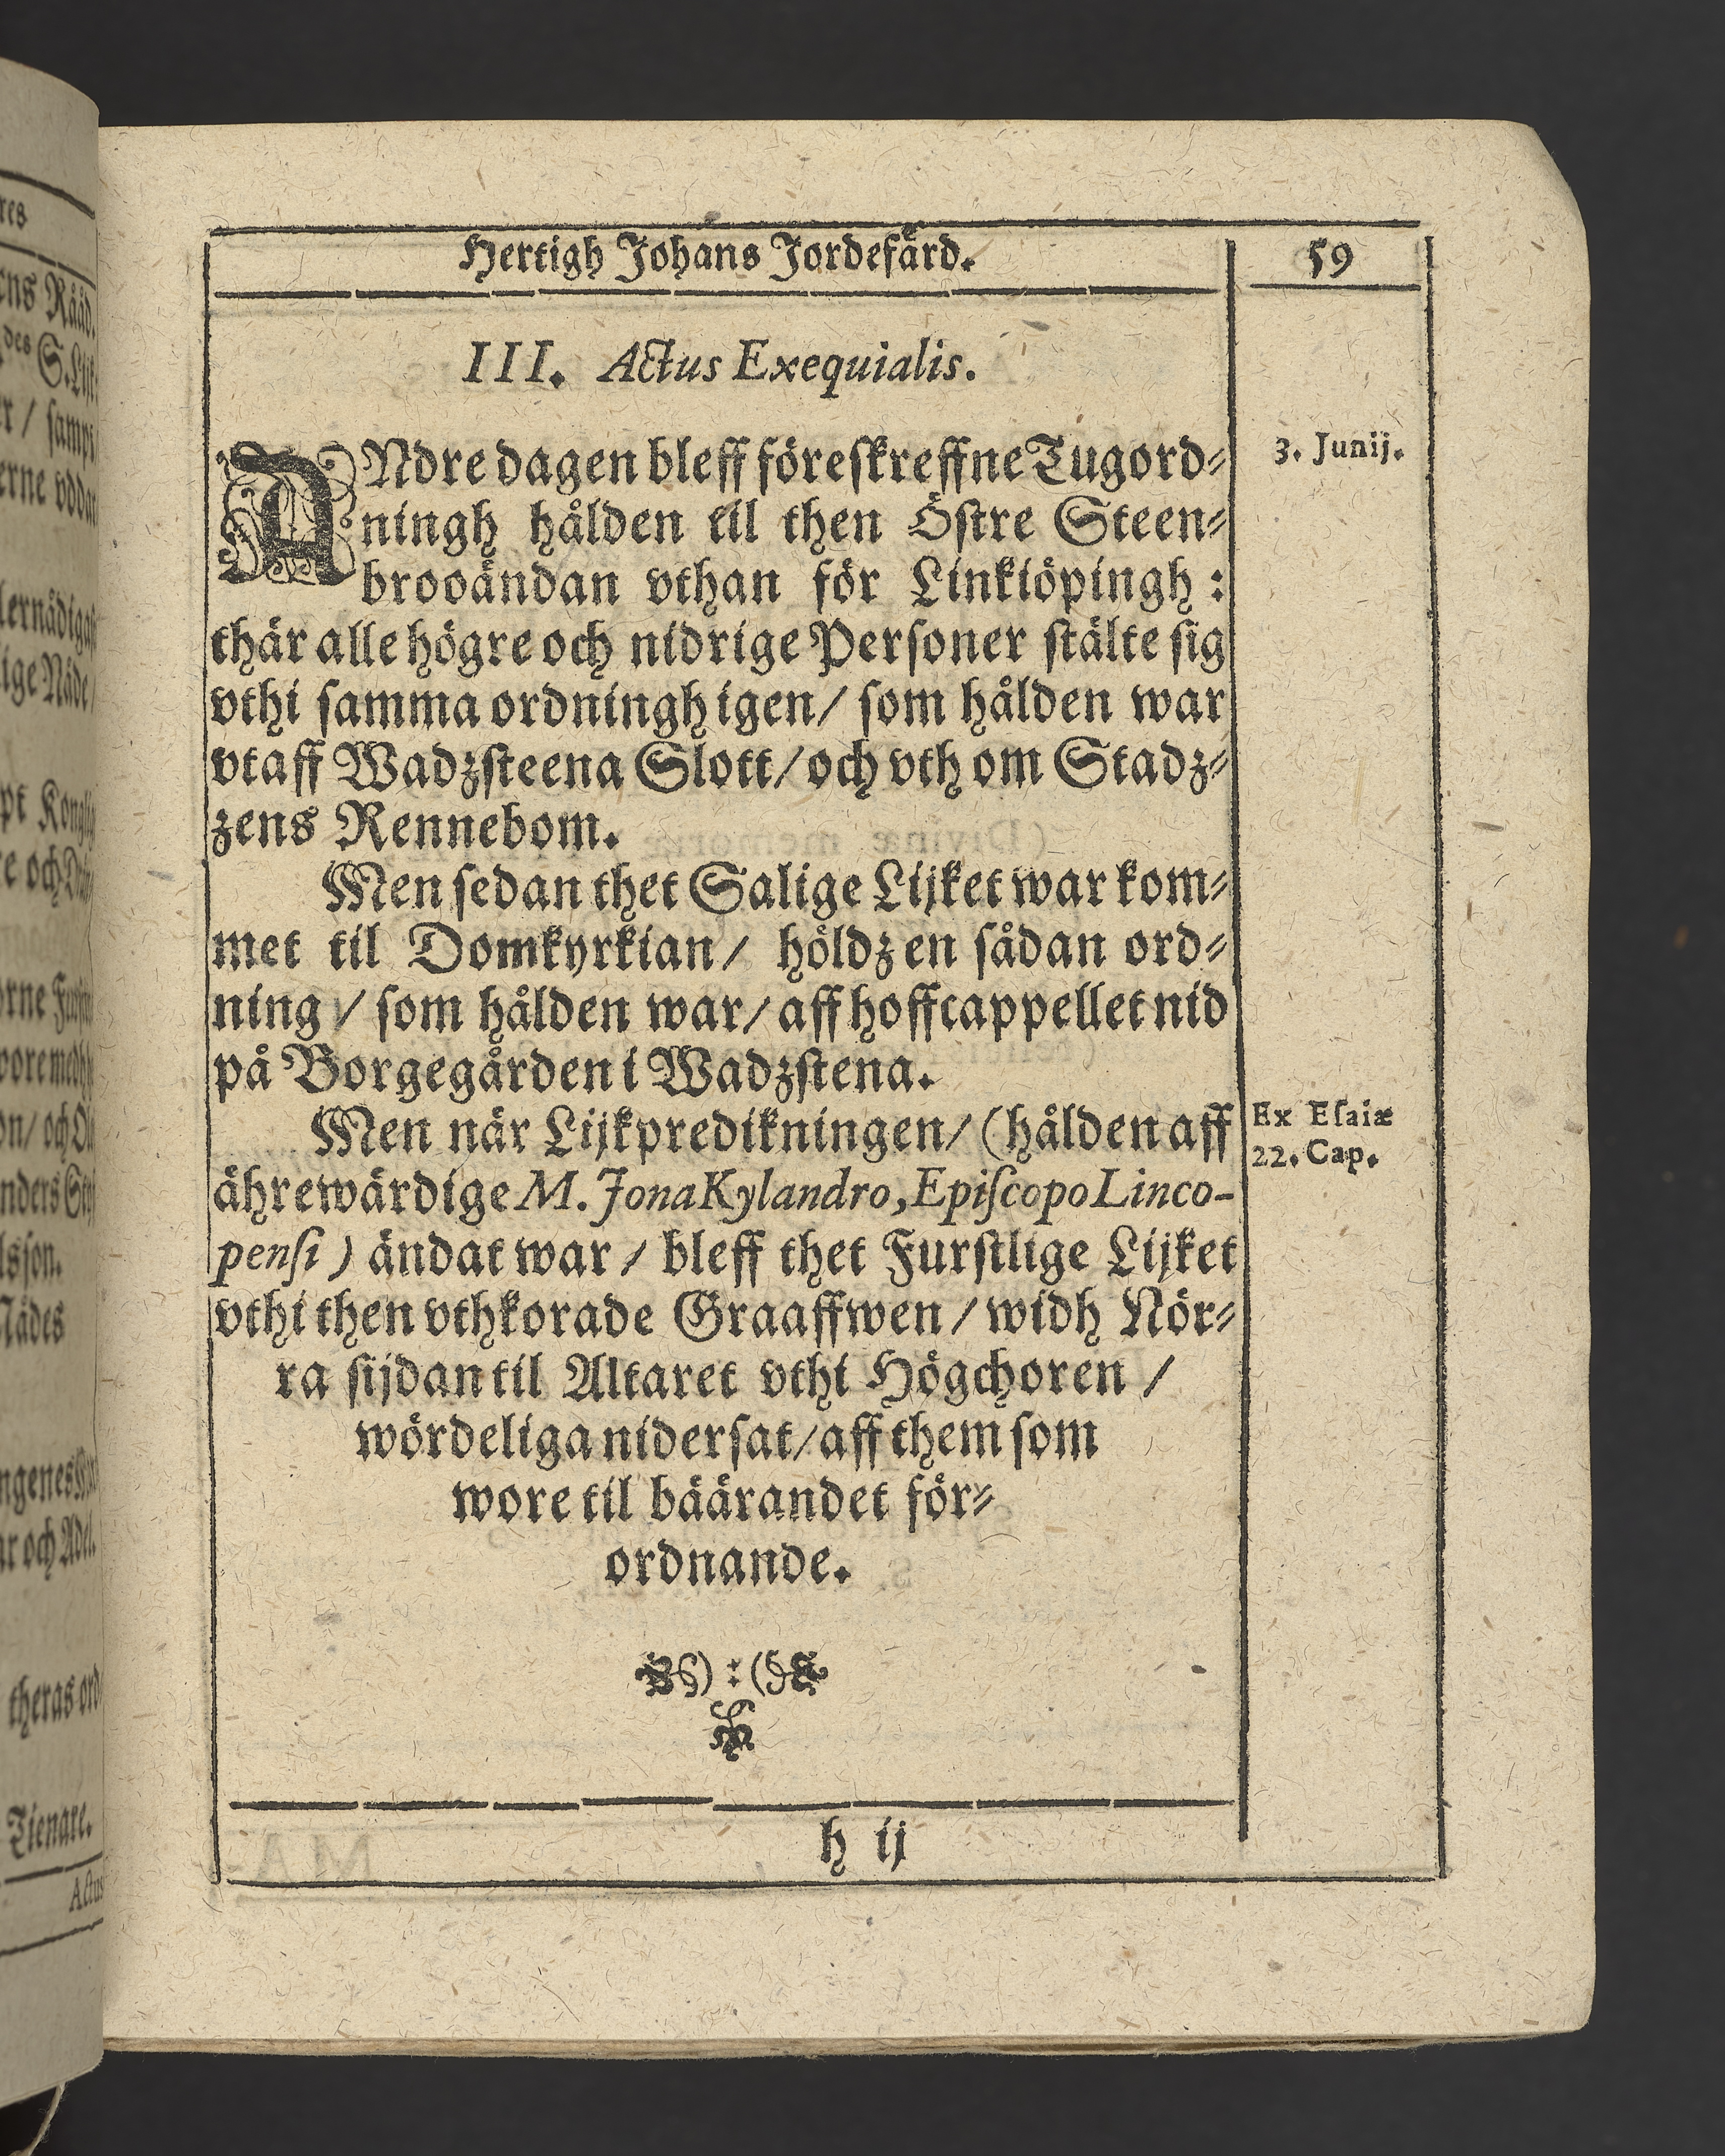 Hertigh Johans Jordefärd.
59
III. Actus Exequialis.
ANdre dagen bleff föreſkreffne Tugord⸗
3. Junij.
ningh hålden til then Öſtre Steen⸗
brooändan vthan för Linkiöpingh :
thär alle högre och nidrige Perſoner ſtälte ſig
vthi ſamma ordningh igen/ ſom hålden war
vtaff Wadzſteena Slott/ och vth om Stadz⸗
zens Rennebom.
Men ſedan thet Salige Lijket war kom⸗
met til Domkyrkian/ höldz en ſådan ord⸗
ning / ſom hålden war/ aff hoffcappellet nid
på Borgegården i Wadzſtena.
Men när Lijkpredikningen/ (hålden aff
Ex Eſaiæ
22. Cap.
ährewärdige M. Jona Kylandro, Epiſcopo Linco-
penſi) ändat war / bleff thet Furſtlige Lijket
vthi then vthkorade Graaffwen / widh Nör⸗
ra ſijdan til Altaret vthi Högchoren /
wördeliga niderſat/ aff them ſom
wore til bäärandet för⸗
ordnande.
h ij